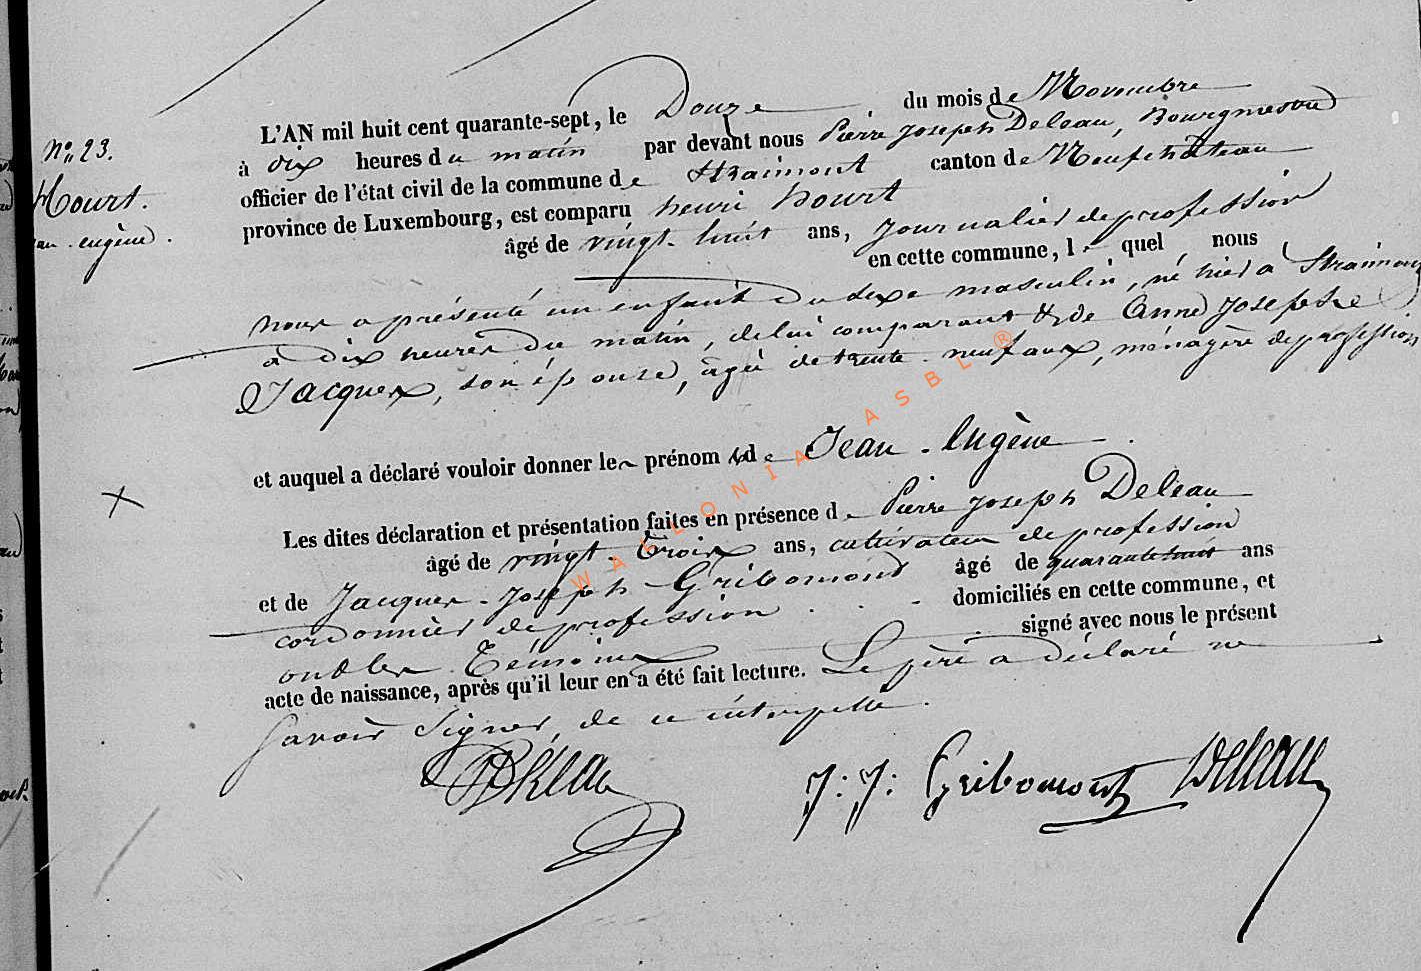 L'AN mil huit cent quarante-sept, le Douze du mois de Novembre
N° 23.
à dix heures du matin par devant nous Pierre Joseph Deleau, Bourgmestre
officier de l'état civil de la commune de Straimont canton de Neufchateau
Hourt.
province de Luxembourg, est comparu henri hourt
eugène.
âgé de vingt-huit ans, journalier de profession
en cette commune, lequel nous
nous a présenté un enfant du sexe masculin, né hier à Straimont
à dix heures du matin, de lui comparant & de Anne Josephe
Jacques, son épouse, âgée de trente-neuf ans, ménagère de profession
et auquel a déclaré vouloir donner les prénoms de Jean-Eugène
Les dites déclaration et présentation faites en présence de Pierre Joseph Deleau
âgé de vingt-trois ans, cultivateur de profession
et de Jacques-Joseph Gribomont âgé de quarante huit ans
cordonnier de profession domiciliés en cette commune, et
signé avec nous le présent
Témoins
acte de naissance, après qu'il leur en a été fait lecture. Le père a déclaré ne
savoir signer, de ce interpellé.
J: J: Gribomont Deleau
WALLONIA ASBL ®